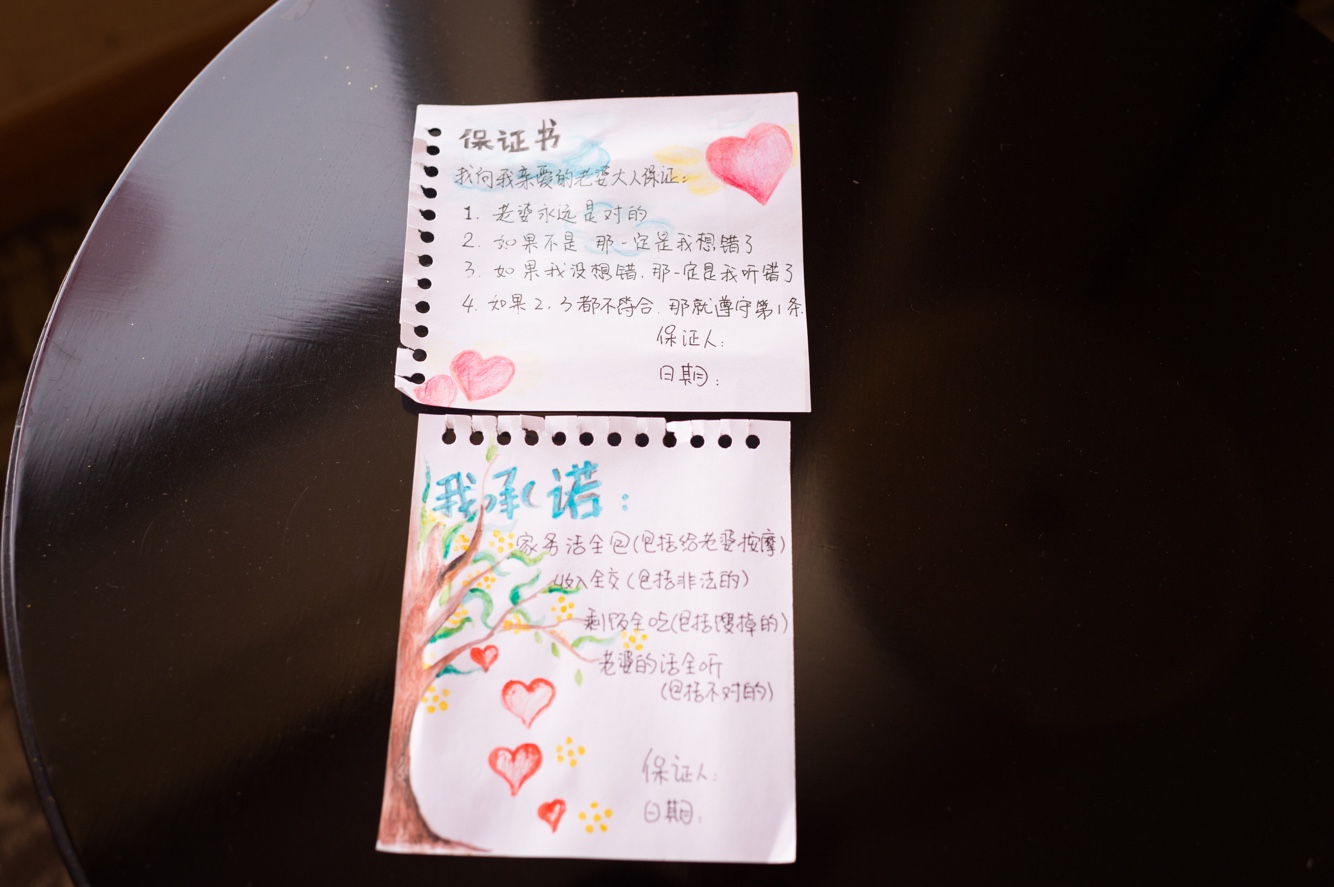 保证书
我向我亲爱的老婆大人保证：
1. 老婆永远是对的
2. 如果不是 那一定是我想错了
3. 如果我没想错，那一定是我听错了
4. 如果2、3都不符合，那就遵守第1条
保证人：
日期：
我承诺：
家务活全包(包括给老婆按摩)
收入全交(包括非法的)
剩饭全吃(包括馊掉的)
老婆的话全听
(包括不对的)
保证人：
日期：